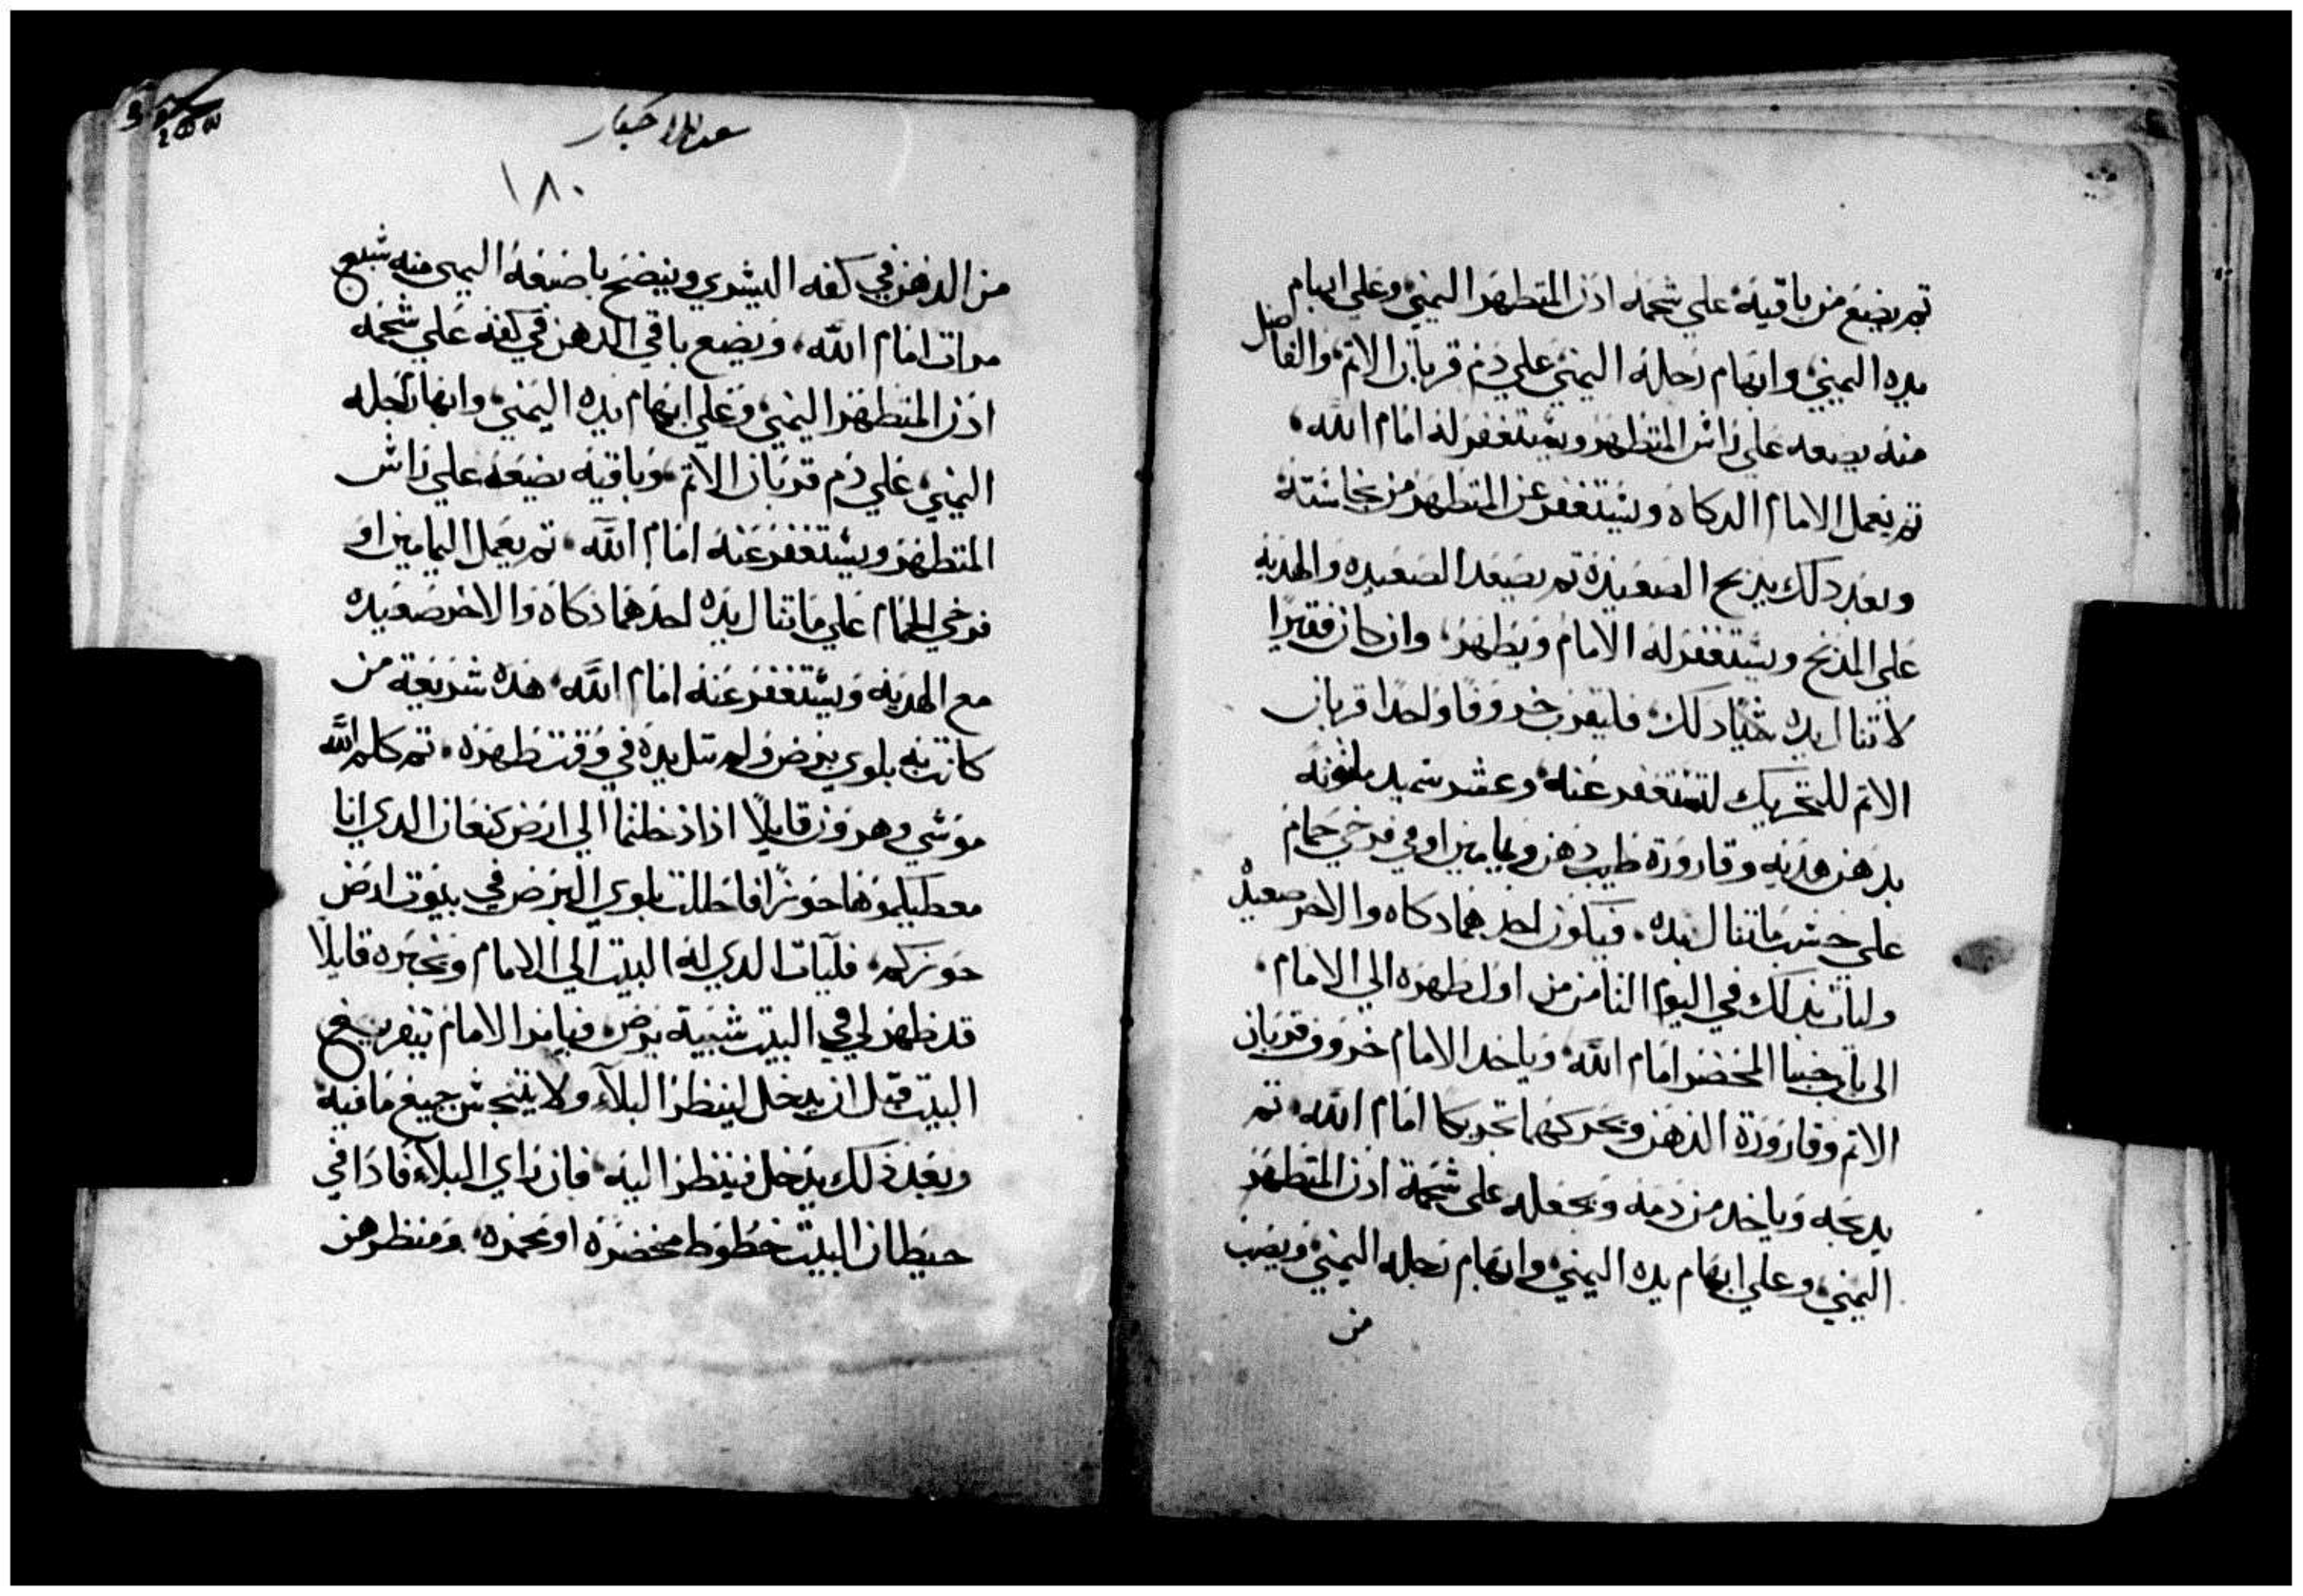 تم يضع من باقيه علي شحمه ادن المتطهر اليمني وعلي ابهام
يده اليمني وابهام رجله اليمني علي دم قربان الاتم والفاضل
منه يضعه علي راش المتطهر ويستغفر له امام الله
تم يعمل الامام الدكاه ويستغفر عن المتطهر من نجاسته
وبعد دلك يدبح الصعيده تم يصعد الصعيده والهديه
علي المدبح ويستغفر له الامام ويطهر وان كان فقيرا
لا تنال يده دلك فليقرب خروفا واحدا قربان
الاتم للتحريك لتستغفر عنه وعشر سميد ملتوته
بدهن هديه وقارورة طيب دهن ويمامين او في فرخي حمام
علي حسب ماتنال يده فيكون احدهما دكاه والاخر صعيده
وليات بدلك في اليوم التامن من اول طهره الي الامام
الي باب خبا المحضر امام الله وياخد الامام خروف قربان
الاتم وقارورة الدهن ويحركهما تحريكا امام الله تم
يدبحه وياخد من دمه ويجعله علي شحمة ادن المتطهر
اليمني وعلي ابهام يده اليمني وابهام رجله اليمني ويصب
من
١٨٠
من الدهن في كفه اليشري وينضح باصبعه اليمني منه شبع
مرات امام الله ويضع باقي الدهن في كفه علي شحمه
ادن المتطهر اليمني وعلي ابهام يده اليمني وابهام رجله
اليمني علي دم قربان الاتم وباقيه يضعه علي راش
المتطهر ويستغفر عنه امام الله تم يعمل اليمامين او
فرخي الحمام علي ماتنال يده احدهما دكاه والاخر صعيده
مع الهديه ويستغفر عنه امام الله هده شريعة من
كانت به بلوي برض ولم تنل يده في وقت طهره تم كلم الله
موشي وهرون قايلا ادا دخلتما الي ارض كنعان الدي انا
معطيكموها حوزا فاحللت بلوي البرض في بيوت ارض
حوزكم فليات الدي له البيت الي الامام ويخبره قايلا
قد ظهر لي في البيت شبيه برض فيامر الامام بتفريغ
البيت قبل ان يدخل لينظر البلاء ولا يتنجش جميع مافيه
وبعد ذلك يدخل فينظر اليه فان راي البلاء فادا في
حيطان البيت خطوط مخضره او محمره ومنظرهن